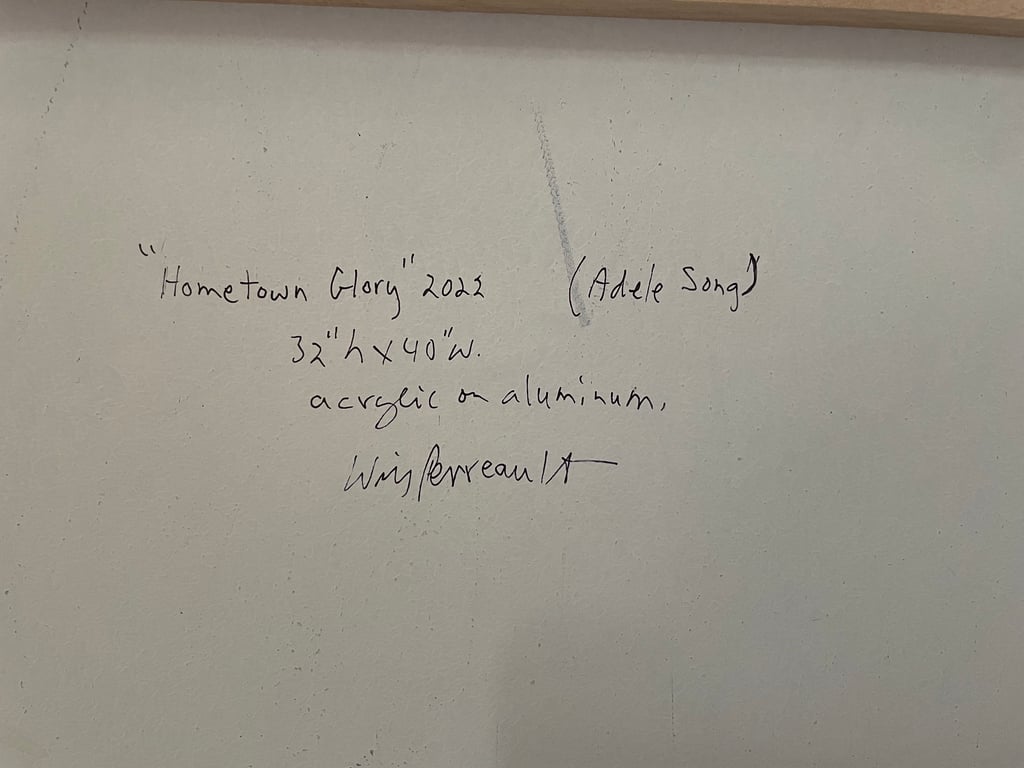 "Hometown Glory" 2022 (Adele Song)
32"h x 40"w.
acrylic on aluminum.
Perreault